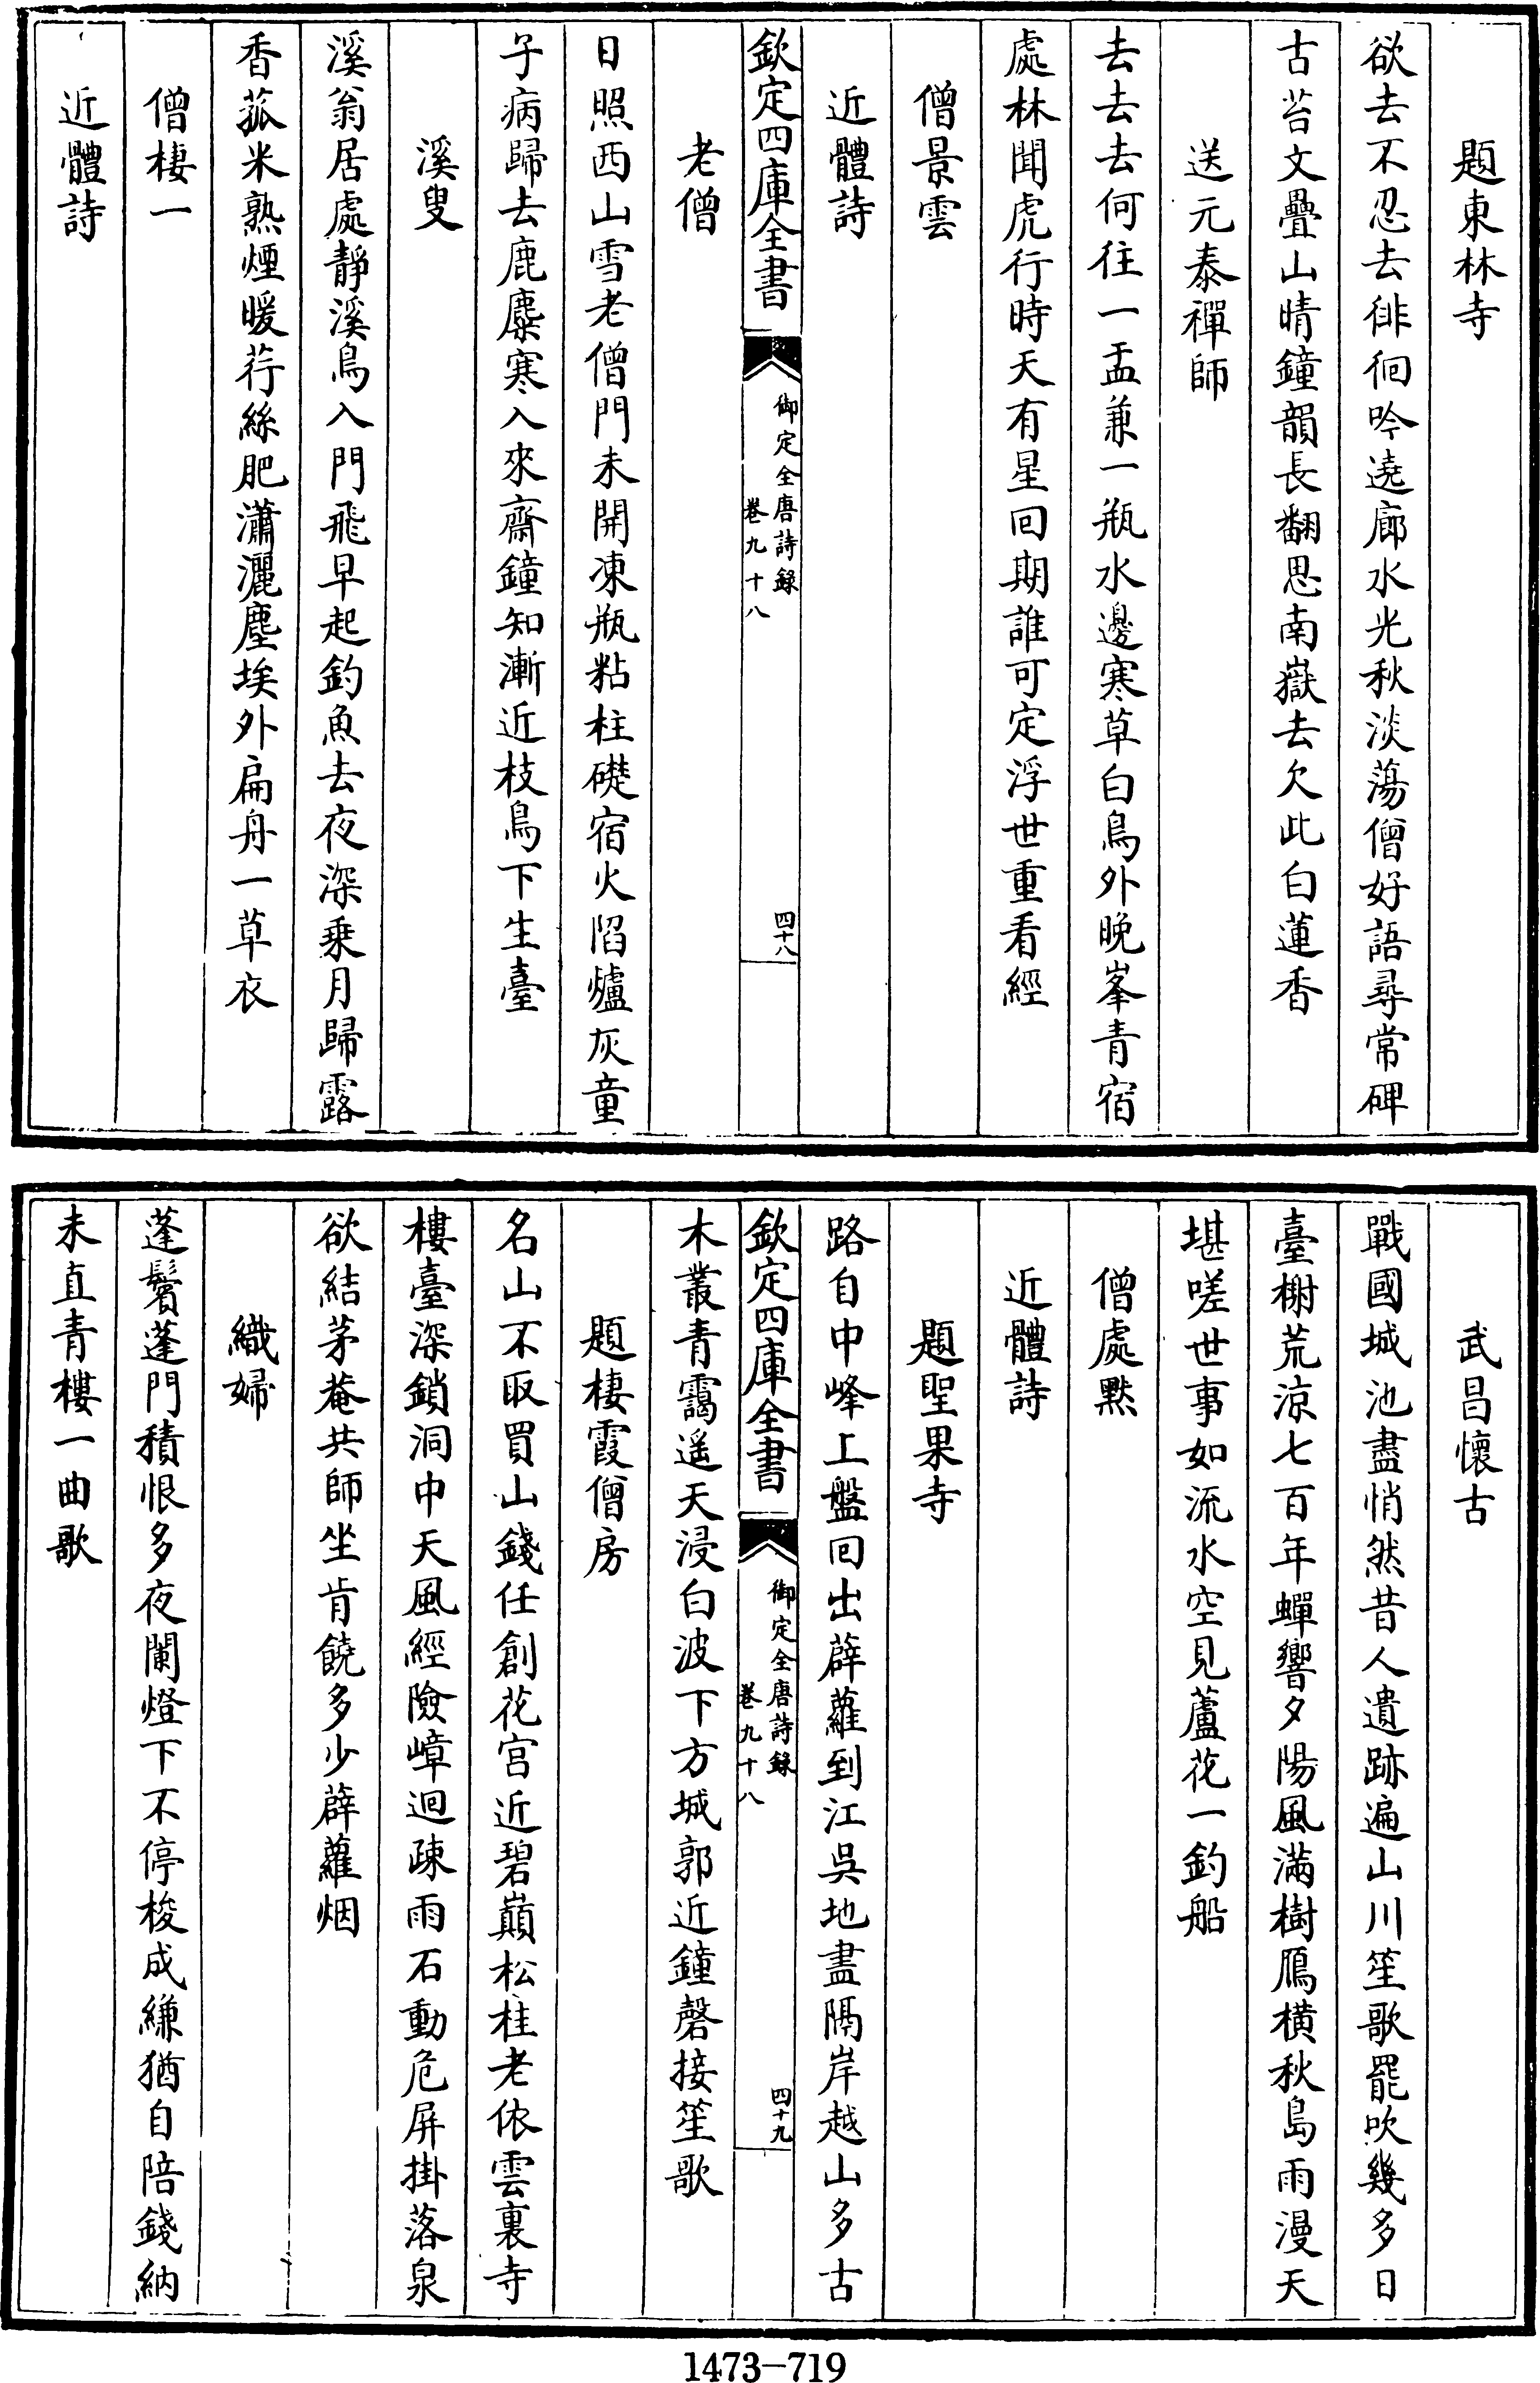 題東林寺
欲去不忍去徘徊吟遶廊水光秋淡蕩僧好語尋常碑
古苔文疊山晴鐘韻長翻思南嶽去欠此白蓮香
送元泰禪師
去去去何往一盂兼一瓶水邊寒草白鳥外晚峯青宿
處林聞虎行時天有星回期誰可定浮世重看經
僧景雲
近體詩
欽定四庫全書
御定全唐詩錄
卷九十八
四十八
老僧
日照西山雪老僧門未開凍瓶粘柱礎宿火陷爐灰童
子病歸去鹿麋寒入來齋鐘知漸近枝鳥下生臺
溪叟
溪翁居處靜溪鳥入門飛早起釣魚去夜深乗月歸露
香菰米熟煙暖荇絲肥瀟灑塵埃外扁舟一草衣
僧棲一
近體詩
武昌懷古
戰國城池盡悄然昔人遺跡遍山川笙歌罷吹幾多日
臺榭荒涼七百年蟬響夕陽風滿樹鴈橫秋島雨漫天
堪嗟世事如流水空見蘆花一釣船
僧處黙
近體詩
題聖果寺
路自中峰上盤回出薜蘿到江吳地盡隔岸越山多古
欽定四庫全書
御定全唐詩錄
卷九十八
四十九
木叢青靄遥天浸白波下方城郭近鐘磬接笙歌
題棲霞僧房
名山不取買山錢任創花宫近碧巔松桂老依雲裏寺
樓臺深鎖洞中天風經險嶂迴疎雨石動危屏掛落泉
欲結茅菴共師坐肯饒多少薜蘿烟
織婦
蓬鬢蓬門積恨多夜闌燈下不停梭成縑猶自陪錢納
未直青樓一曲歌
1473-719